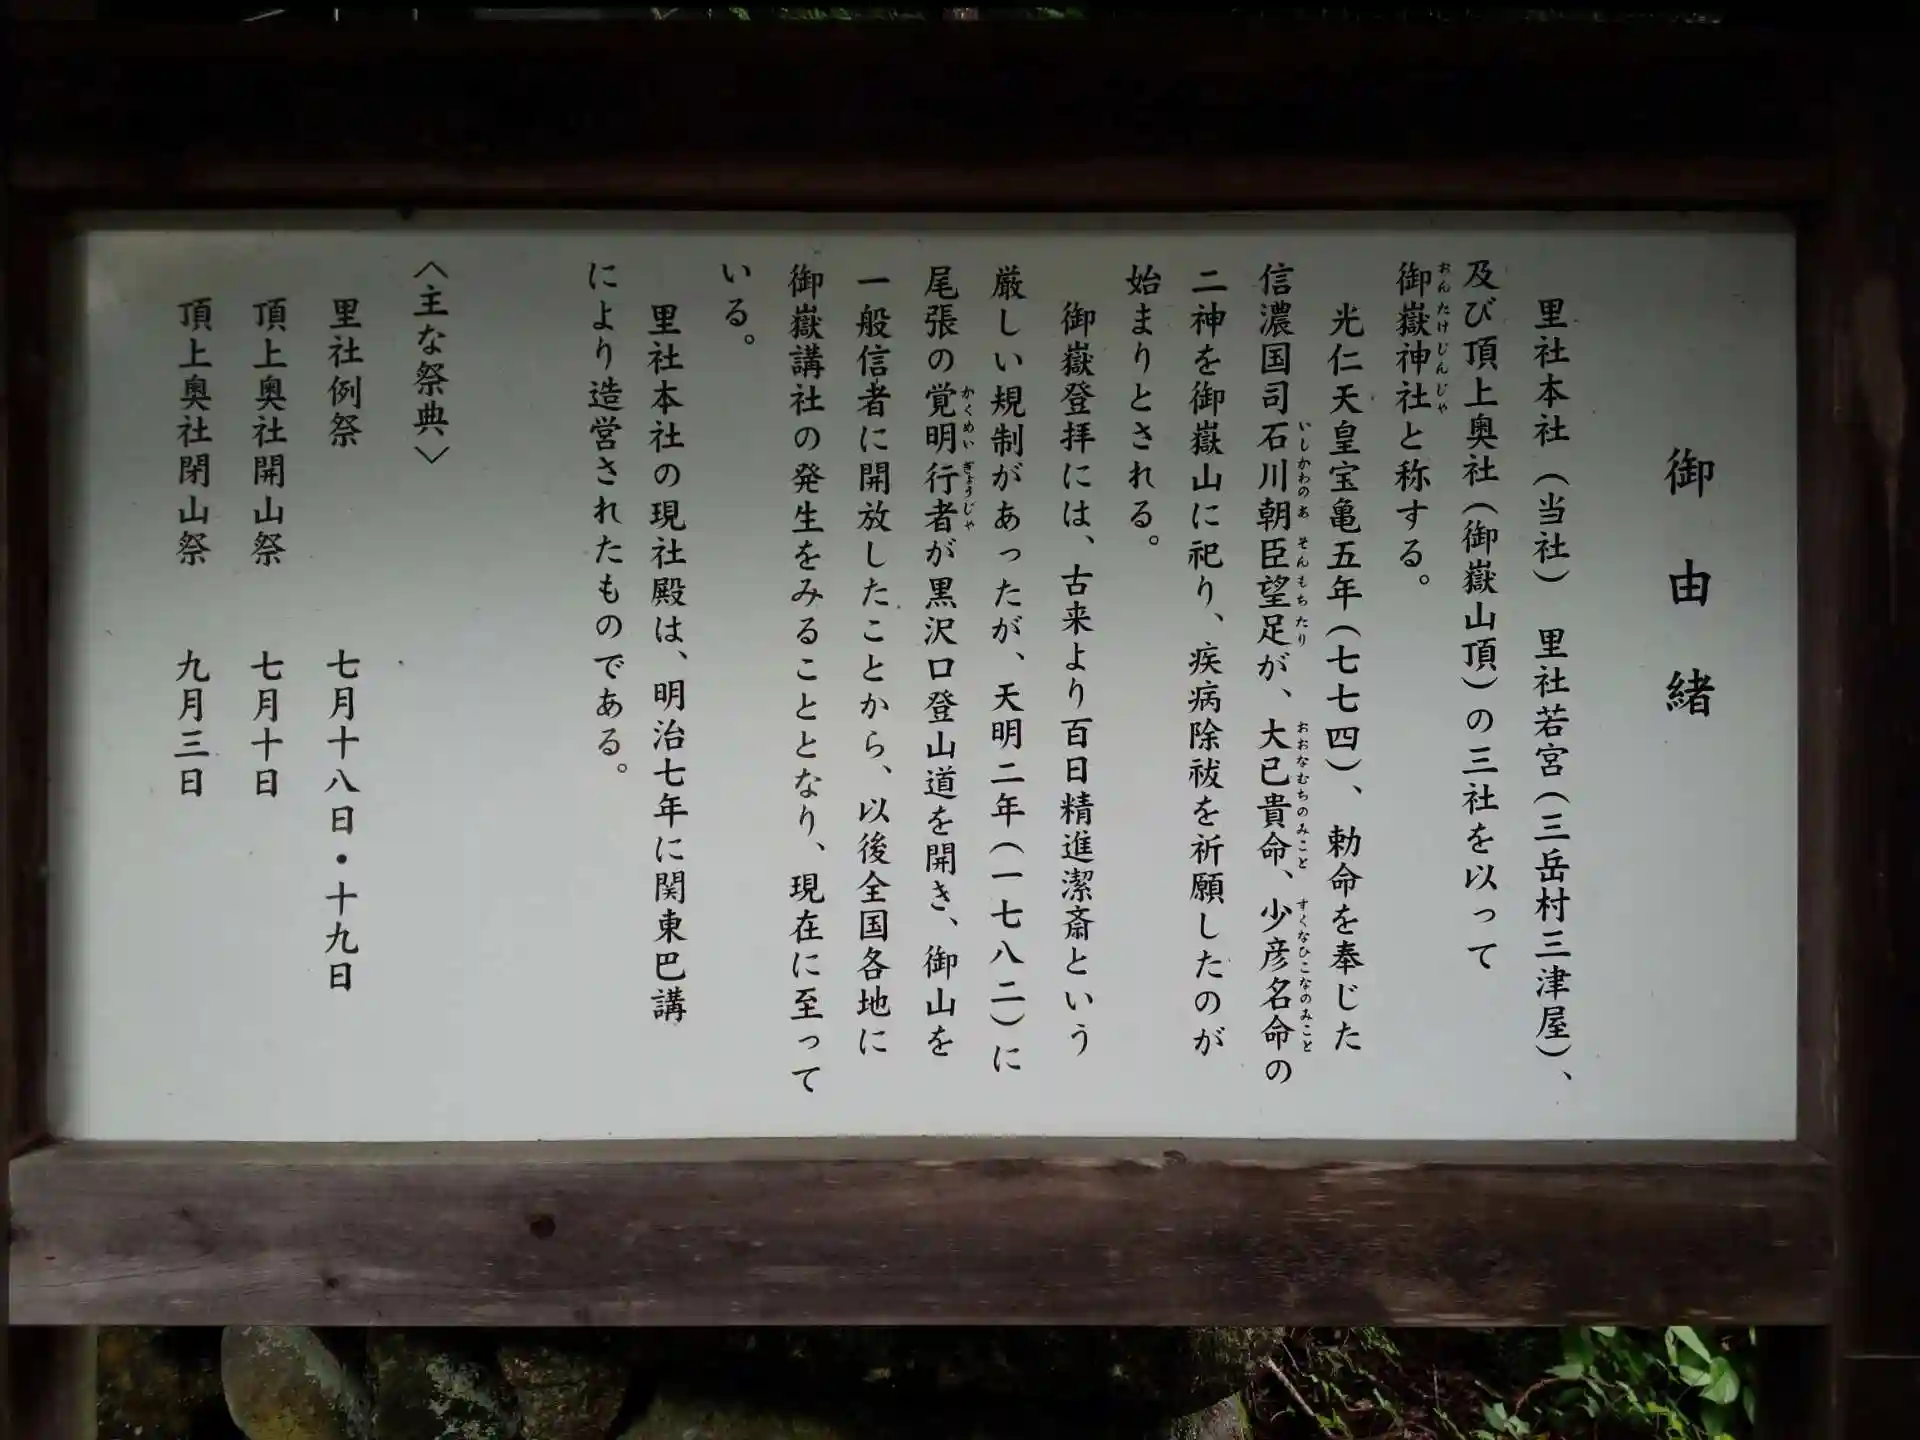 御由緒
里社本社（当社）　里社若宮（三岳村三津屋）、
及び頂上奥社（御嶽山頂）の三社を以って
御嶽神社と称する。
おんたけじんじゃ
光仁天皇宝亀五年（七七四）、勅命を奉じた
信濃国司石川朝臣望足が、大已貴命、少彦名命の
いしかわのあそんもちたり　おおなむちのみこと　すくなひこなのみこと
二神を御嶽山に祀り、疾病除祓を祈願したのが
始まりとされる。
御嶽登拝には、古来より百日精進潔斎という
厳しい規制があったが、天明二年（一七八二）に
尾張の覚明行者が黒沢口登山道を開き、御山を
かくめいぎょうじゃ
一般信者に開放したことから、以後全国各地に
御嶽講社の発生をみることとなり、現在に至って
いる。
里社本社の現社殿は、明治七年に関東巴講
により造営されたものである。
〈主な祭典〉
里社例祭　七月十八日・十九日
頂上奥社開山祭　七月十日
頂上奥社閉山祭　九月三日